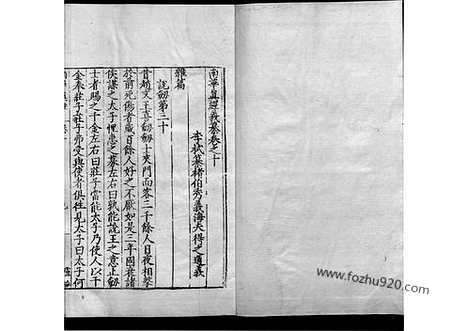 南華真經義纂卷之十
李栻纂褚伯秀義海夫得之通義
雜篇
說劒第三十
昔趙文王喜劒劒士夾門而客三千餘人日夜相擊
於前死傷者歲百餘人好之不厭如是三年國衰諸
侯謀之太子悝患之募左右曰孰能說王之意止劒
士者賜之千金左右曰莊子當能太子乃使人以千
金奉莊子莊子弗受與使者俱徃見太子曰太子何
www.fozhu920.com